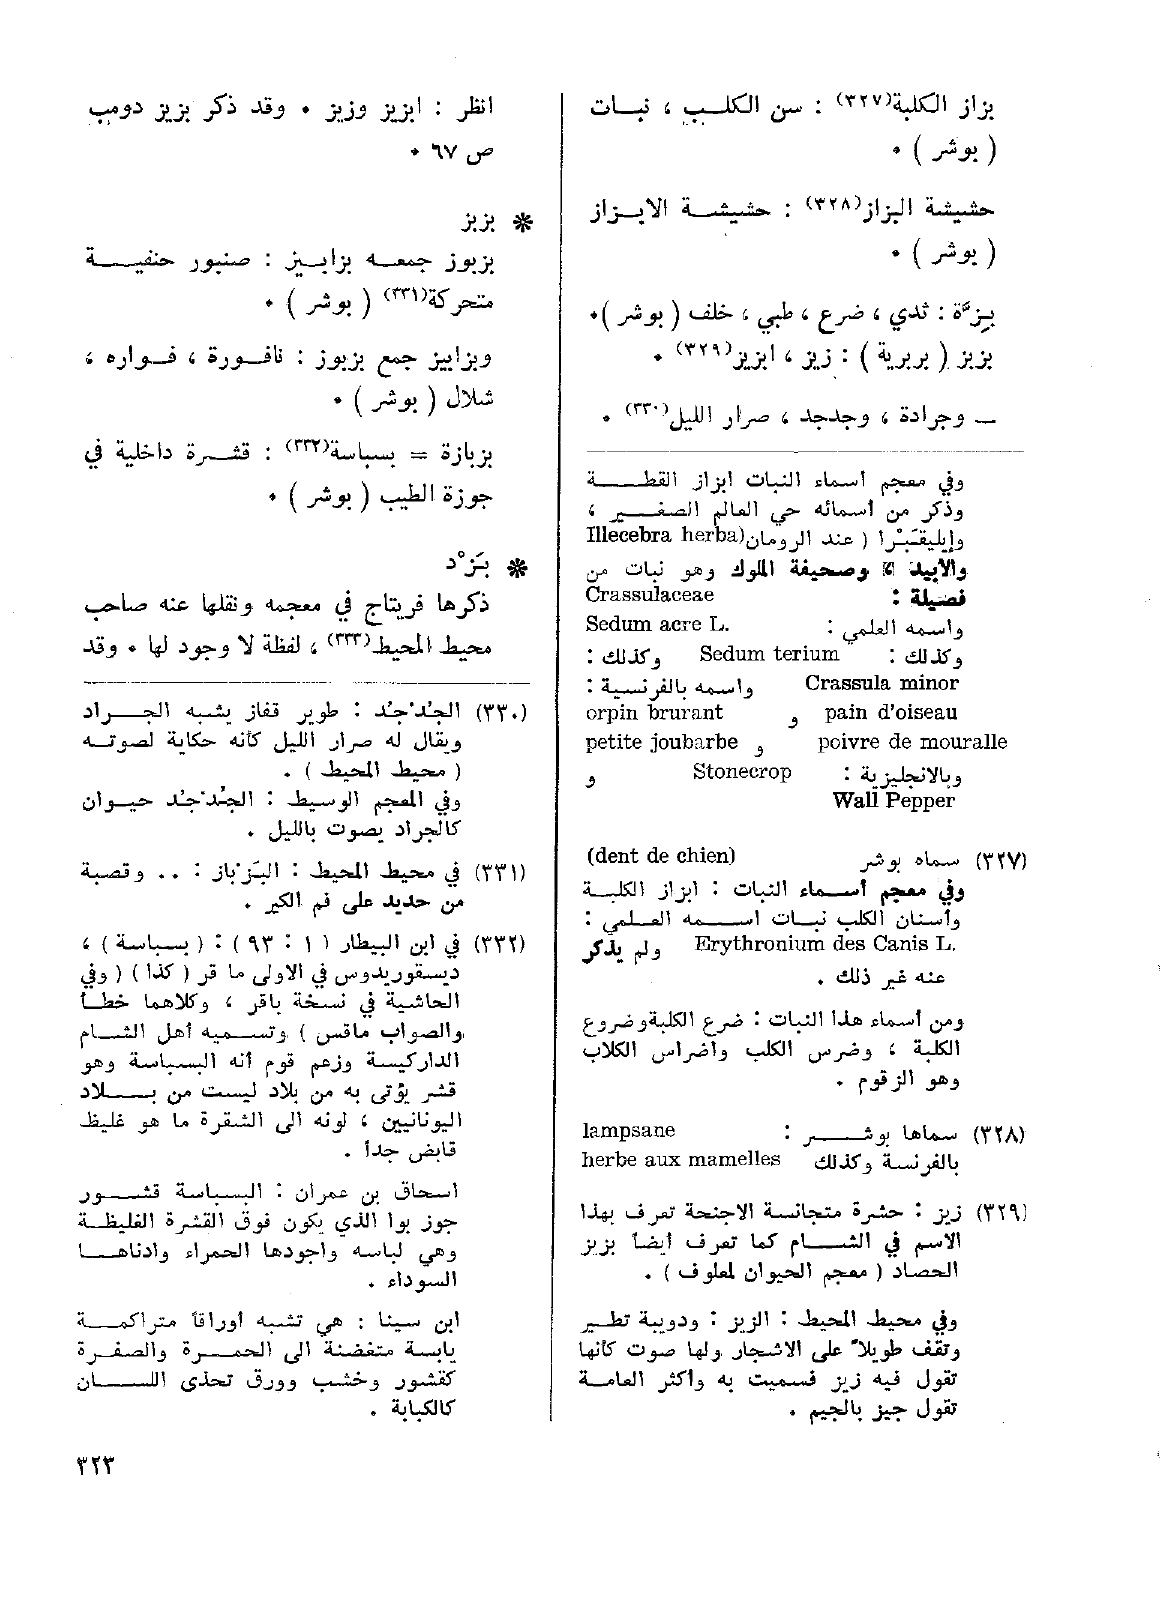 بزاز الكلبة(٣٢٧) : سن الكلب ، نبات
( بوشر ) ٠
حشيشة البزاز(٣٢٨) : حشيشة الابزاز
( بوشر ) ٠
بِزَّة : ثدي ، ضرع ، طبي ، خلف ( بوشر )٠
بزيز ( بربرية ) : زيز ، ابزيز(٣٢٩) ٠
— وجرادة ، وجدجد ، صرار الليل(٣٣٠) ٠
وفي معجم اسماء النبات ابزاز القطة
وذكر من اسمائه حي العالم الصغير ،
وإيليقبرا ( عند الرومان(Illecebra herba
والابيد وصحيفة الملوك وهو نبات من
فصيلة : Crassulaceae
واسمه العلمي : Sedum acre L.
وكذلك : Sedum terium وكذلك :
Crassula minor واسمه بالفرنسية :
pain d'oiseau و orpin brurant
poivre de mouralle و petite joubarbe
وبالانجليزية : Stonecrop و
Wall Pepper
(٣٢٧) سماه بوشر (dent de chien)
وفي معجم اسماء النبات : ابزاز الكلبة
واسنان الكلب نبات اسمه العلمي :
Erythronium des Canis L. ولم يذكر
عنه غير ذلك .
ومن اسماء هذا النبات : ضرع الكلبة وضروع
الكلبة ، وضرس الكلب واضراس الكلاب
وهو الزقوم .
(٣٢٨) سماها بوشر : lampsane
بالفرنسة وكذلك herbe aux mamelles
(٣٢٩) زيز : حشرة متجانسة الاجنحة تعرف بهذا
الاسم في الشام كما تعرف ايضاً بزيز
الحصاد ( معجم الحيوان لمعلوف ) .
وفي محيط المحيط : الزيز : ودويبة تطير
وتقف طويلاً على الاشجار ولها صوت كانها
تقول فيه زيز فسميت به واكثر العامة
تقول جيز بالجيم .
انظر : ابزيز وزيز ٠ وقد ذكر بزيز دومب
ص ٦٧ ٠
✻ بزبز
بزبوز جمعه بزابيز : صنبور حنفية
متحركة(٣٣١) ( بوشر ) ٠
وبزابيز جمع بزبوز : نافورة ، فواره ،
شلال ( بوشر ) ٠
بزبازة = بسباسة(٣٣٢) : قشرة داخلية في
جوزة الطيب ( بوشر ) ٠
✻ بَزْد
ذكرها فريتاج في معجمه ونقلها عنه صاحب
محيط المحيط(٣٣٣) ، لفظة لا وجود لها ٠ وقد
(٣٣٠) الجُدْجُد : طوير قفاز يشبه الجراد
ويقال له صرار الليل كانه حكاية لصوته
( محيط المحيط ) .
وفي المعجم الوسيط : الجُدْجُد حيوان
كالجراد يصوت بالليل .
(٣٣١) في محيط المحيط : البَزْباز : .. وقصبة
من حديد على فم الكير .
(٣٣٢) في ابن البيطار ( ١ : ٩٣ ) : ( بسباسة ) ،
ديسقوريدوس في الاولى ما قر ( كذا ) ( وفي
الحاشية في نسخة باقر ، وكلاهما خطأ
والصواب ماقس ) وتسميه أهل الشام
الداركيسة وزعم قوم أنه البسباسة وهو
قشر يؤتى به من بلاد ليست من بلاد
اليونانيين ، لونه الى الشقرة ما هو غليظ
قابض جداً .
اسحاق بن عمران : البسباسة قشور
جوز بوا الذي يكون فوق القشرة الغليظة
وهي لباسه واجودها الحمراء وادناها
السوداء .
ابن سينا : هي تشبه اوراقاً متراكمة
يابسة متغضنة الى الحمرة والصفرة
كقشور وخشب وورق تحذى اللسان
كالكبابة .
٣٢٣